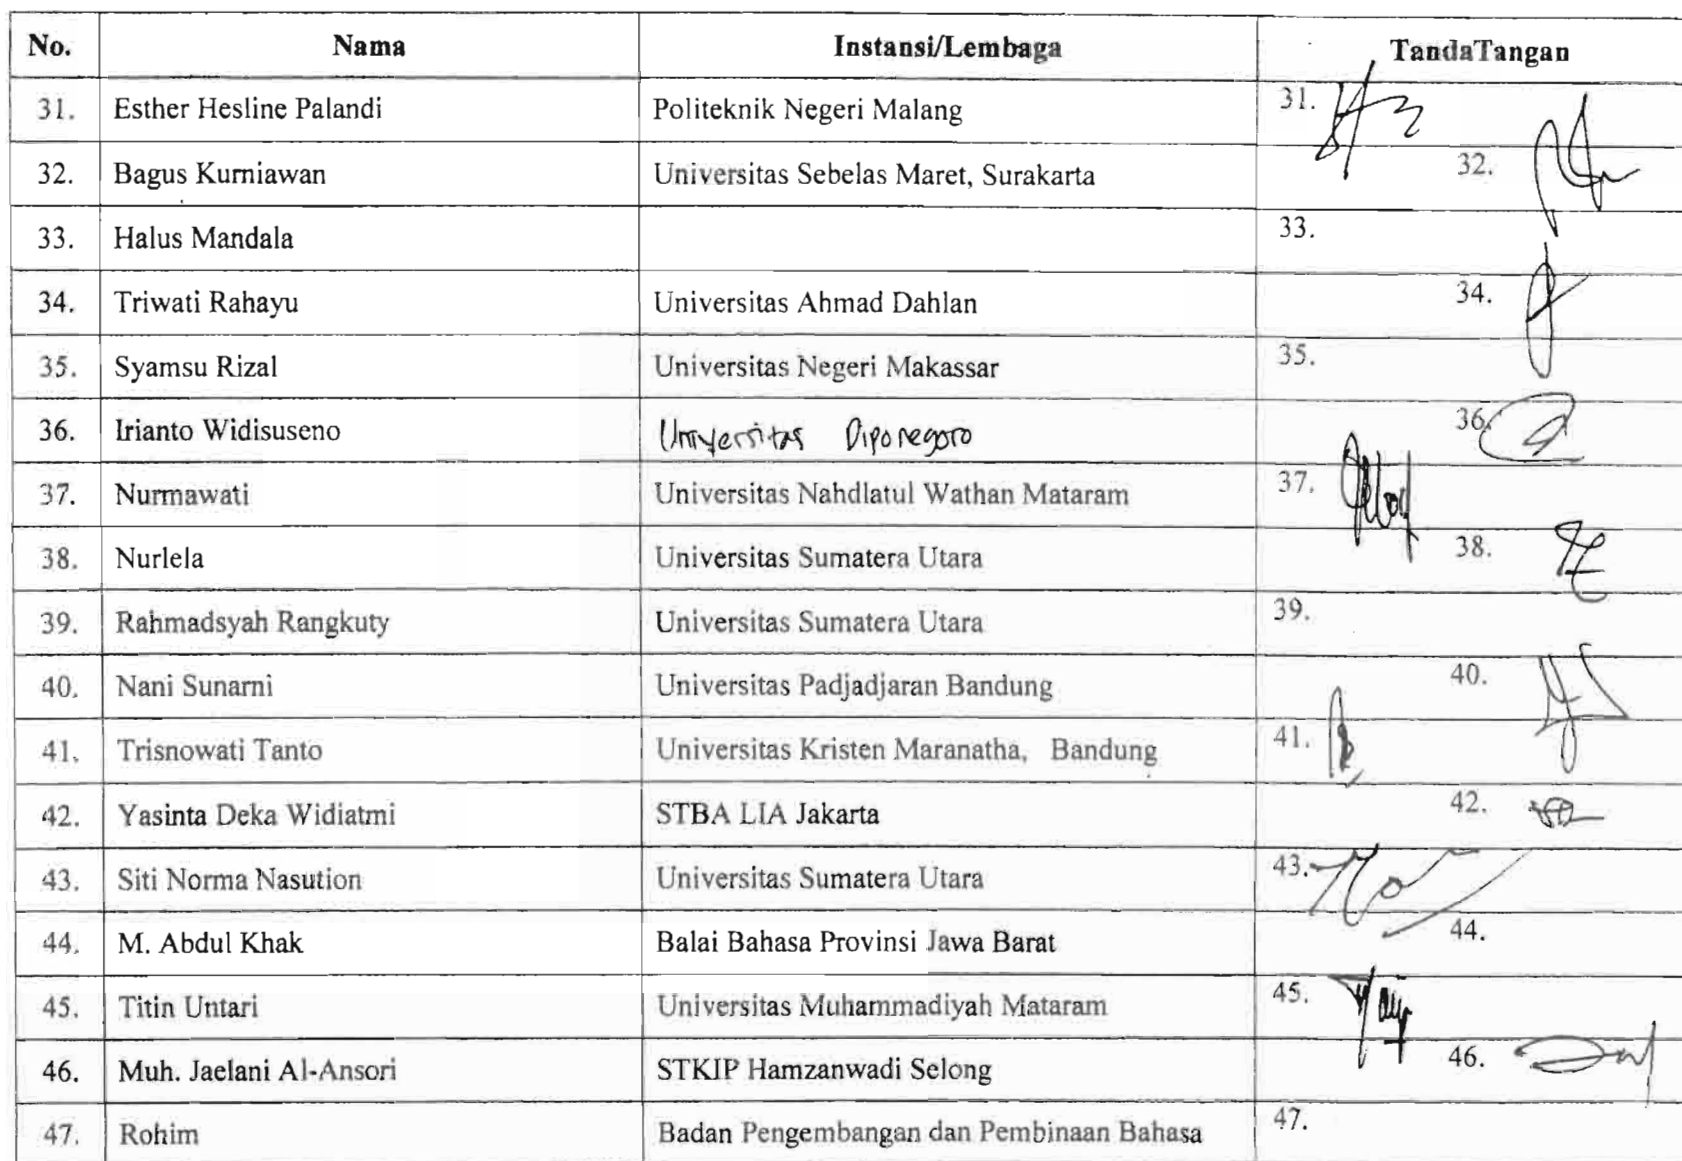 No. Nama Instansi/Lembaga TandaTangan
31. Esther Hesline Palandi Politeknik Negeri Malang 31.
32. Bagus Kurniawan Universitas Sebelas Maret, Surakarta 32.
33. Halus Mandala 33.
34. Triwati Rahayu Universitas Ahmad Dahlan 34.
35. Syamsu Rizal Universitas Negeri Makassar 35.
36. Irianto Widisuseno Universitas Diponegoro 36.
37. Nurmawati Universitas Nahdlatul Wathan Mataram 37.
38. Nurlela Universitas Sumatera Utara 38.
39. Rahmadsyah Rangkuty Universitas Sumatera Utara 39.
40. Nani Sunarni Universitas Padjadjaran Bandung 40.
41. Trisnowati Tanto Universitas Kristen Maranatha, Bandung 41.
42. Yasinta Deka Widiatmi STBA LIA Jakarta 42.
43. Siti Norma Nasution Universitas Sumatera Utara 43.
44. M. Abdul Khak Balai Bahasa Provinsi Jawa Barat 44.
45. Titin Untari Universitas Muhammadiyah Mataram 45.
46. Muh. Jaelani Al-Ansori STKIP Hamzanwadi Selong 46.
47. Rohim Badan Pengembangan dan Pembinaan Bahasa 47.